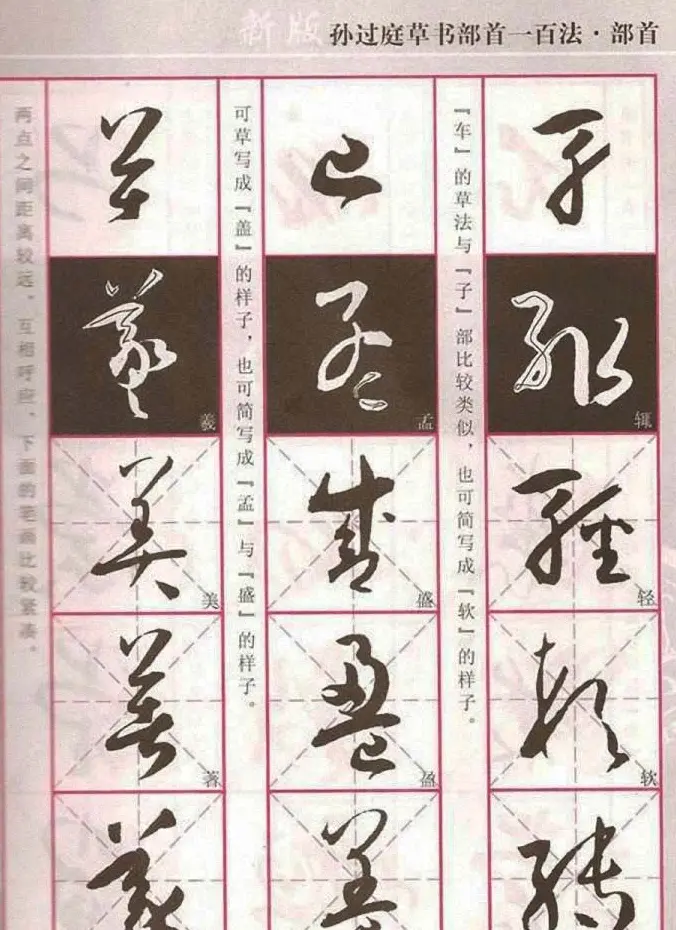 新版
孙过庭草书部首一百法·部首
『车』的草法与『子』部比较类似，也可简写成『软』的样子。
辄
轻
软
可草写成『盖』的样子，也可简写成『孟』与『盛』的样子。
孟
盛
盈
两点之间距离较远，互相呼应，下面的笔画比较紧凑。
羲
美